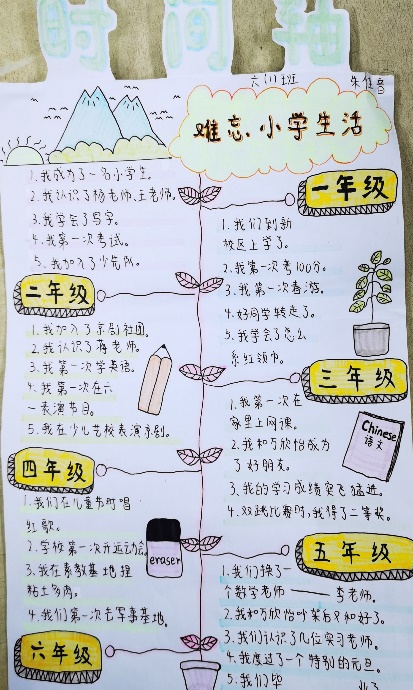 时间轴
六(1)班
难忘小学生活
1.我成为了一名小学生。
2.我认识了杨老师、王老师。
3.我学会了写字。
4.我第一次考试。
5.我加入了少先队。
一年级
1.我们到新
校区上学了。
2.我第一次考100分。
3.我第一次春游。
4.好同学转走了。
5.我学会了怎么
系红领巾。
二年级
1.我加入了京剧社团。
2.我认识了蒋老师。
3.我第一次学英语。
4.我第一次在六
一表演节目。
5.我在少儿艺校表演京剧。
三年级
1.我第一次在
家里上网课。
2.我和万欣怡成为
了好朋友。
3.我的学习成绩突飞猛进。
4.双跳比赛时,我得了二等奖。
Chinese
语文
四年级
1.我们在儿童节时唱
红歌。
2.学校第一次开运动会
3.我在素教基地捏
粘土多肉。
4.我们第一次去军事基地。
eraser
五年级
1.我们换了一
个数学老师——李老师。
2.我和万欣怡吵架后又和好了。
3.我们认识了几位实习老师。
4.我度过了一个特别的元旦。
5.我们毕
六年级